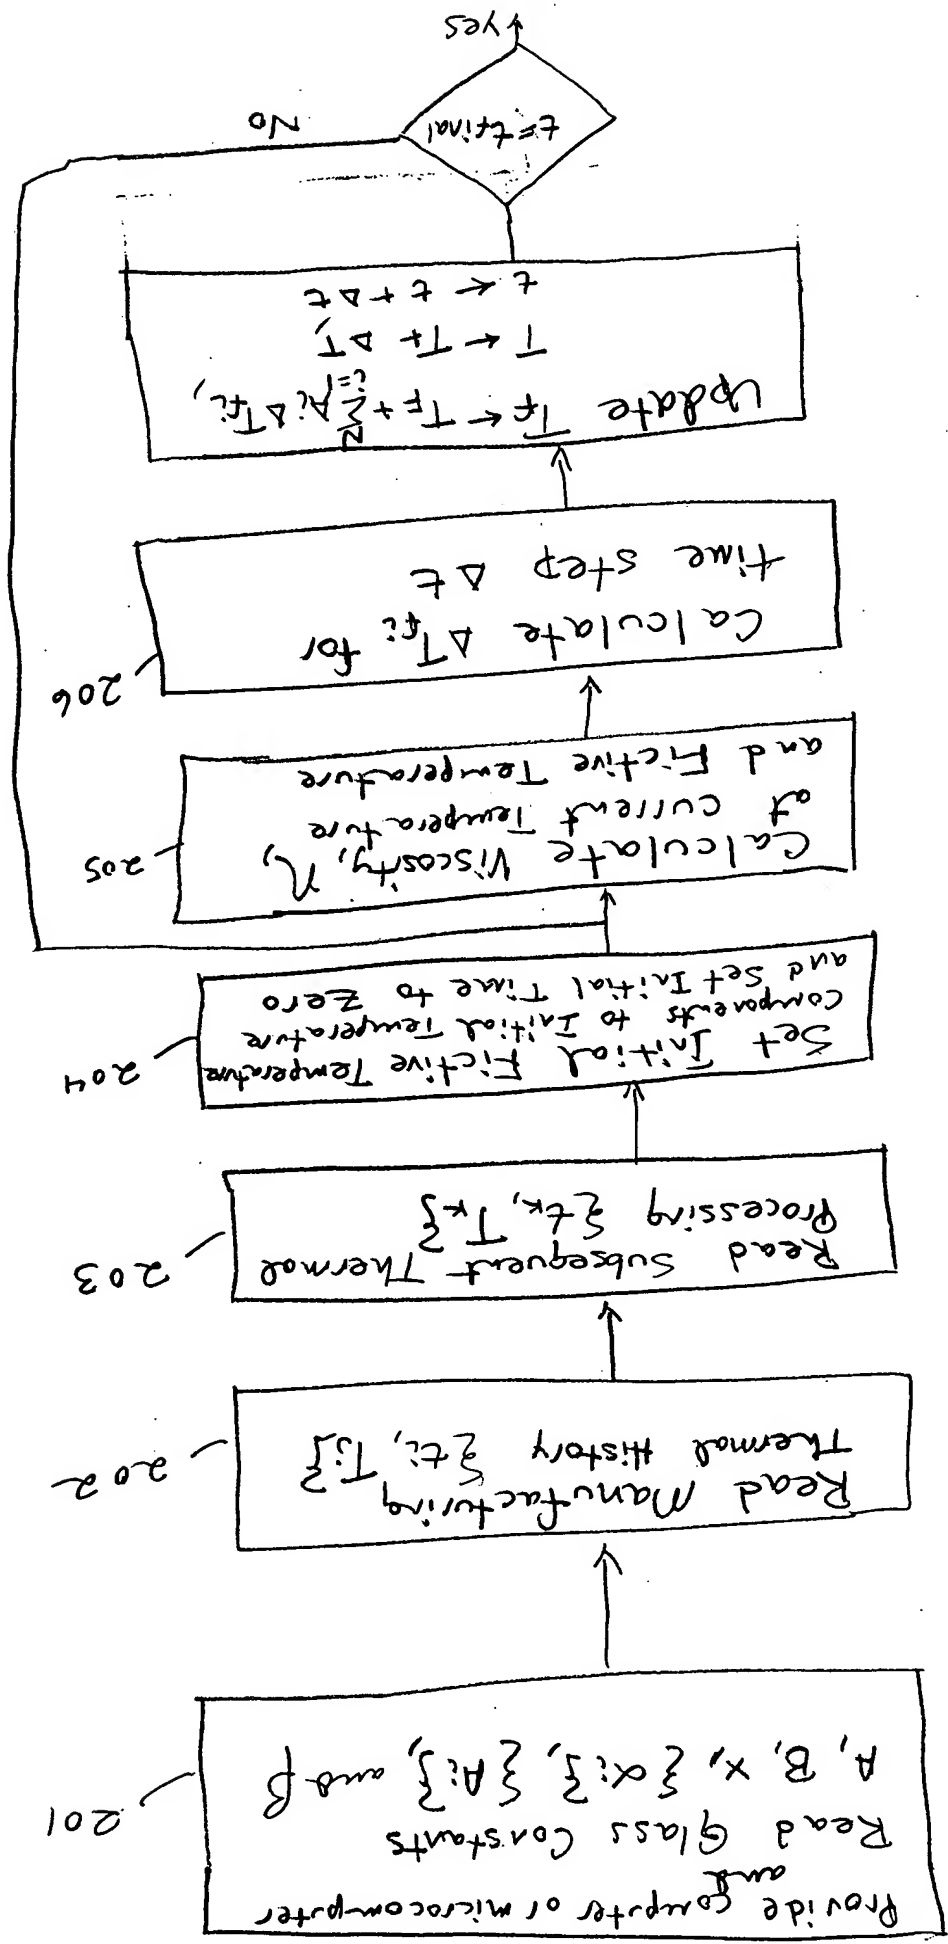 Provide computer or microcomputer
and
Read Glass Constants
A, B, x, {αi}, {Ai}, and β
201
Read Manufacturing
Thermal History {ti, Tj}
202
Read Subsequent Thermal
Processing {tk, Tk}
203
Set Initial Fictive Temperature
Components to Initial Temperature
and Set Initial Time to Zero
204
Calculate Viscosity, η,
at current Temperature
and Fictive Temperature
205
Calculate ΔTfi for
time step Δt
206
Update TF ← TF + N∑i=1 Ai ΔTfi,
T ← T + ΔT,
t ← t + Δt
t = tfinal
No
yes